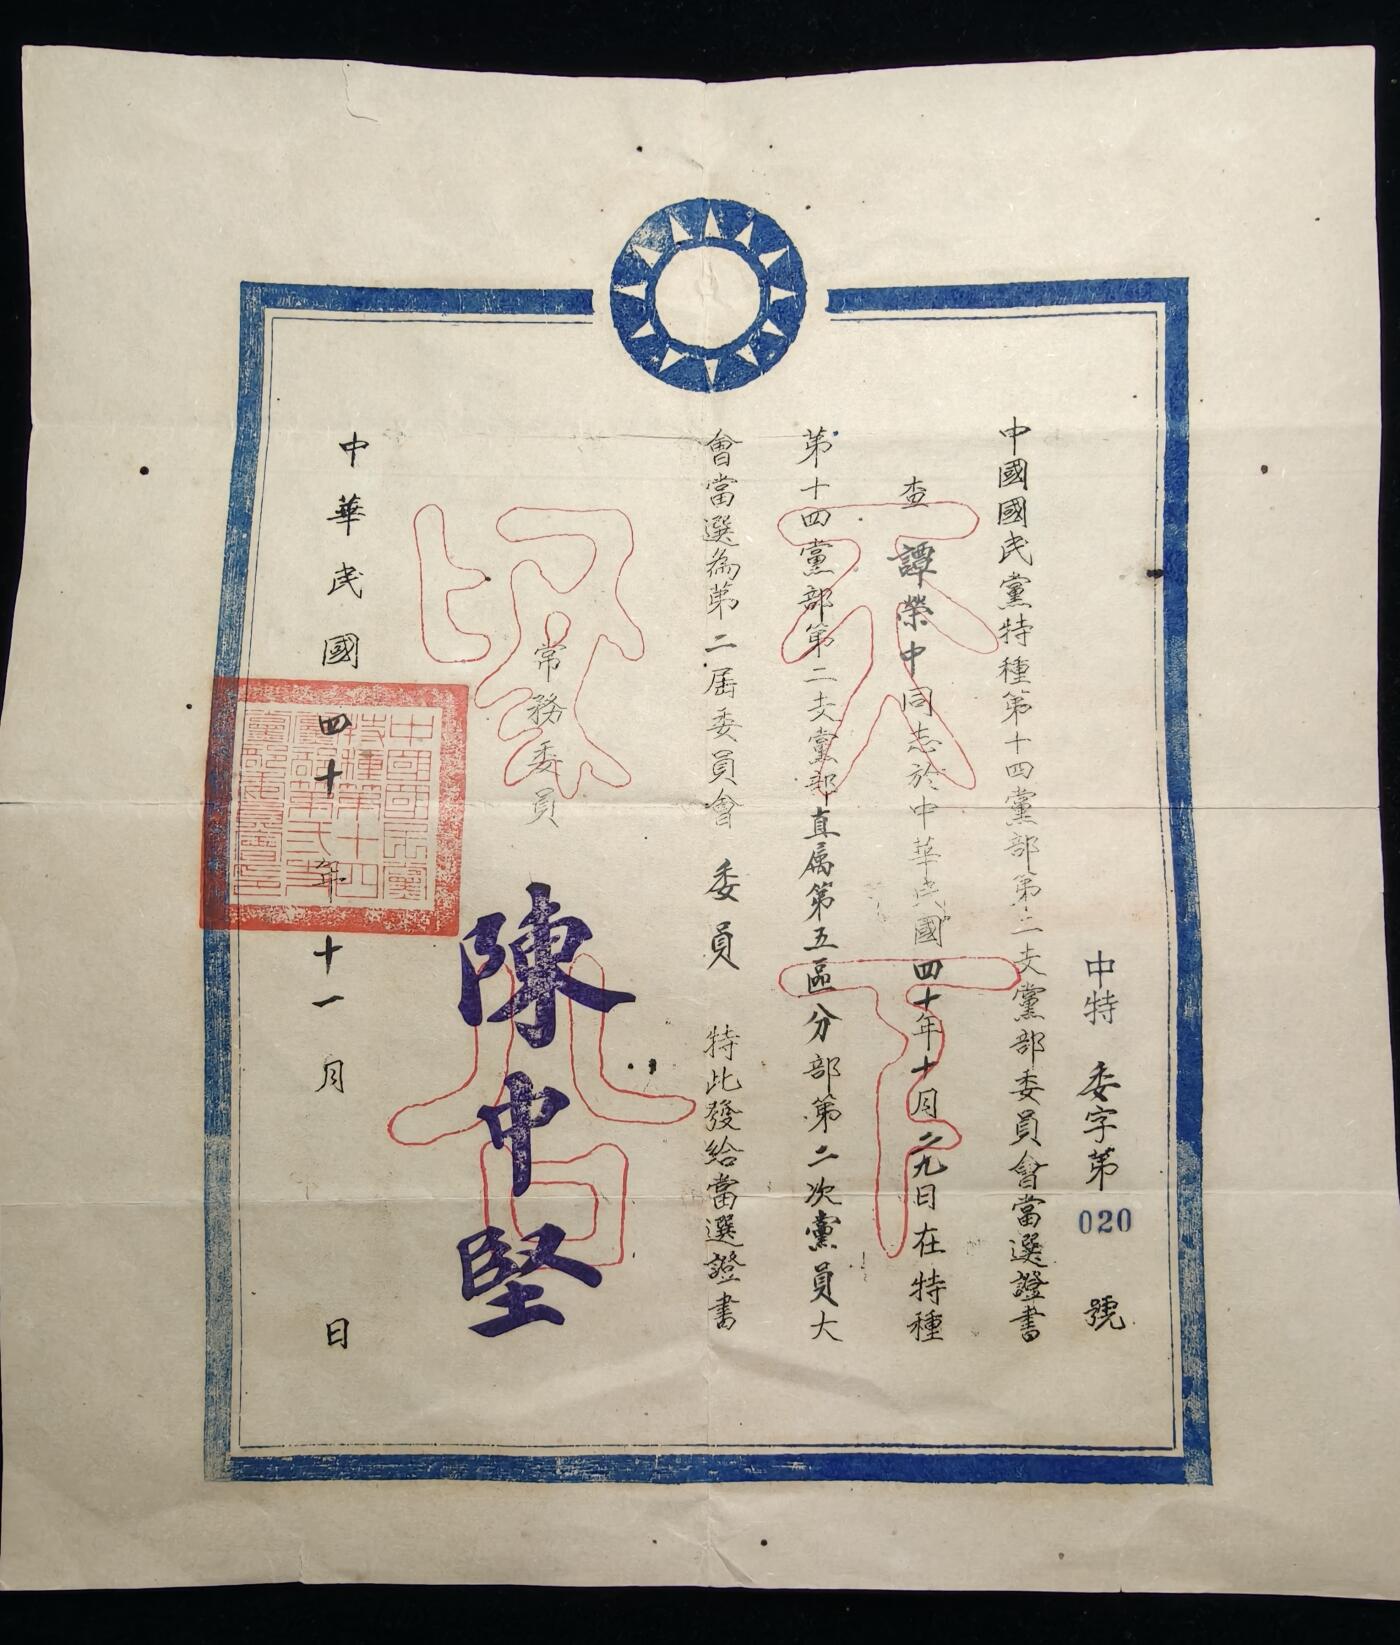 中特 委字第020號
中國國民黨特種第十四黨部第二支黨部委員會當選證書
查 譚榮中同志於中華民國四十年十月二九日在特種
第十四黨部第二支黨部直屬第五區分部第二次黨員大
會當選為第二屆委員會 委員 特此發給當選證書
常務委員 陳中堅
中華民國四十年十一月 日
天下為公
中國國民黨
特種第十四
黨部第弍支
黨部委員會印